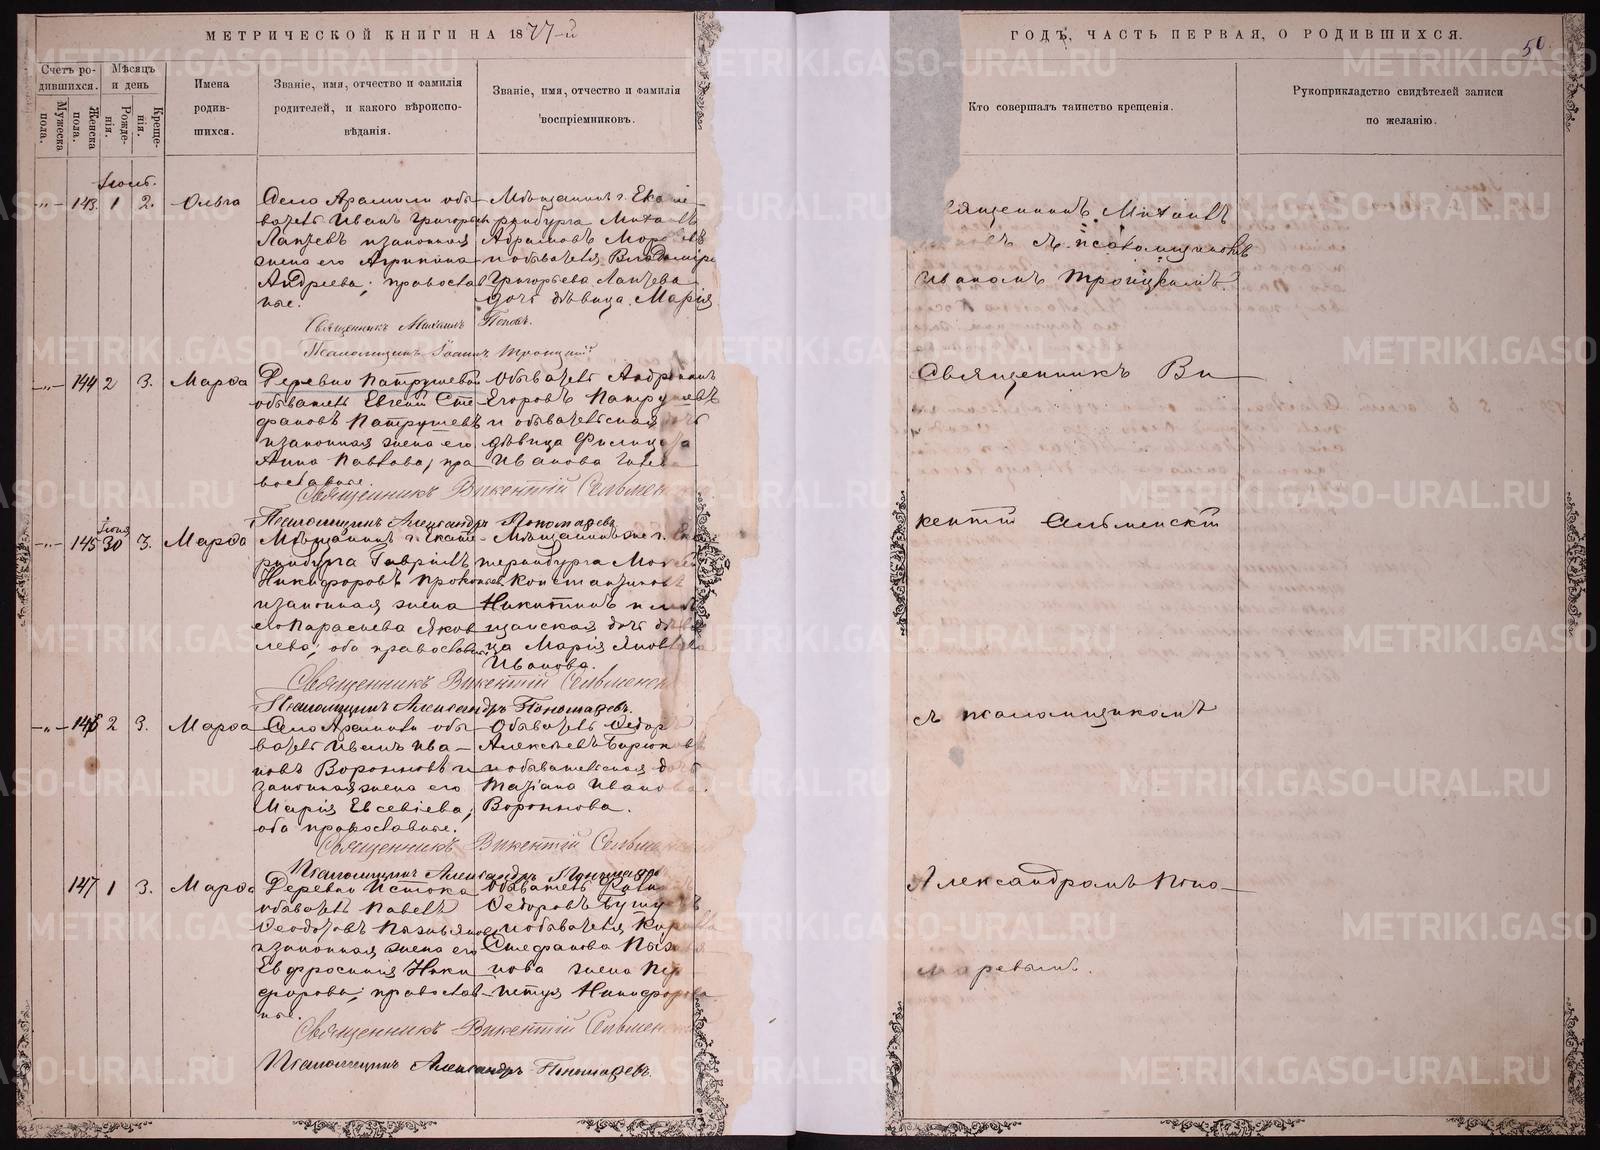 МЕТРИЧЕСКОЙ КНИГИ НА 1877-й
ГОДЪ, ЧАСТЬ ПЕРВАЯ, О РОДИВШИХСЯ.
50
Счетъ ро-
дившихся.
Мужеска
пола.
Женска
пола.
Мѣсяцъ
и день
Рожде-
нія.
Креще-
нія.
Имена
родив-
шихся.
Званіе, имя, отчество и фамилія
родителей, и какого вѣроиспо-
вѣданія.
Званіе, имя, отчество и фамилія
воспріемниковъ.
Кто совершалъ таинство крещенія.
Рукоприкладство свидѣтелей записи
по желанію.
143. 1 2. Ольга
Село Арамили обы
ватель Иванъ Григорьев
Лаптевъ и законная
жена его Агрипина
Андреева; православ
ные.
Мѣщанинъ г. Екате
ринбурга Михаилъ
Абрамовъ
и обывателя Владимира
Григорьева Лаптева
дочь дѣвица Марія
Священникъ Михаилъ Поповъ.
Псаломщикъ Іоаннъ Троицкій
вященникъ Михаилъ
повъ съ псаломщикомъ
Иваномъ Троицкимъ.
144 2 3. Марѳа
Деревни Патрушевой
обыватель Евгеній Сте
фановъ Патрушевъ
и законная жена его
Анна Павлова, пра
вославные.
Обыватель Андроникъ
Егоровъ Патрушевъ
и обывательская дочь
дѣвица Филицата
Иванова
Священникъ Викентій Сельменс
Псаломщикъ Александръ Пономаревъ
Священникъ Ви—
145 30 3. Марѳа
Мѣщанинъ г. Екате
ринбурга Гавріилъ
Никифоровъ Прокопьев
и законная жена
его Параскева Яков
лева; оба православные
Мѣщанинъ г. Ека
теринбурга
Константиновъ
Никитинъ и мѣ
щанская дочь дѣви
ца Марія Яковлева
Иванова.
Священникъ Викентій Сельменск
Псаломщикъ Александръ Пономаревъ.
кентій Сельменскій
146 2 3. Марѳа
Село Арамили обы
ватель Иванъ Ива—
новъ Воронновъ и
законная жена его
Марія Евсевіева,
оба православные.
Обыватель Ѳедоръ
Алексѣевъ Бирюков
и обывательская дочь
Татіана Иванова
Вороннова.
Священникъ Викентій Сельменск
Псаломщикъ Александръ Пономаревъ
съ псаломщикомъ
147 1 3. Марѳа
Деревни Истока
обыватель Павелъ
Ѳеодотовъ
и законная жена его
Евфросинія Ники
форова; православ—
ные.
Обыватель
Ѳедоровъ
и обывателя
Стефанова
нова жена
Никифорова
Священникъ Викентій Сельменск
Псаломщикъ Александръ Пономаревъ.
Александромъ Поно—
маревымъ.
METRIKI.GASO-URAL.RU